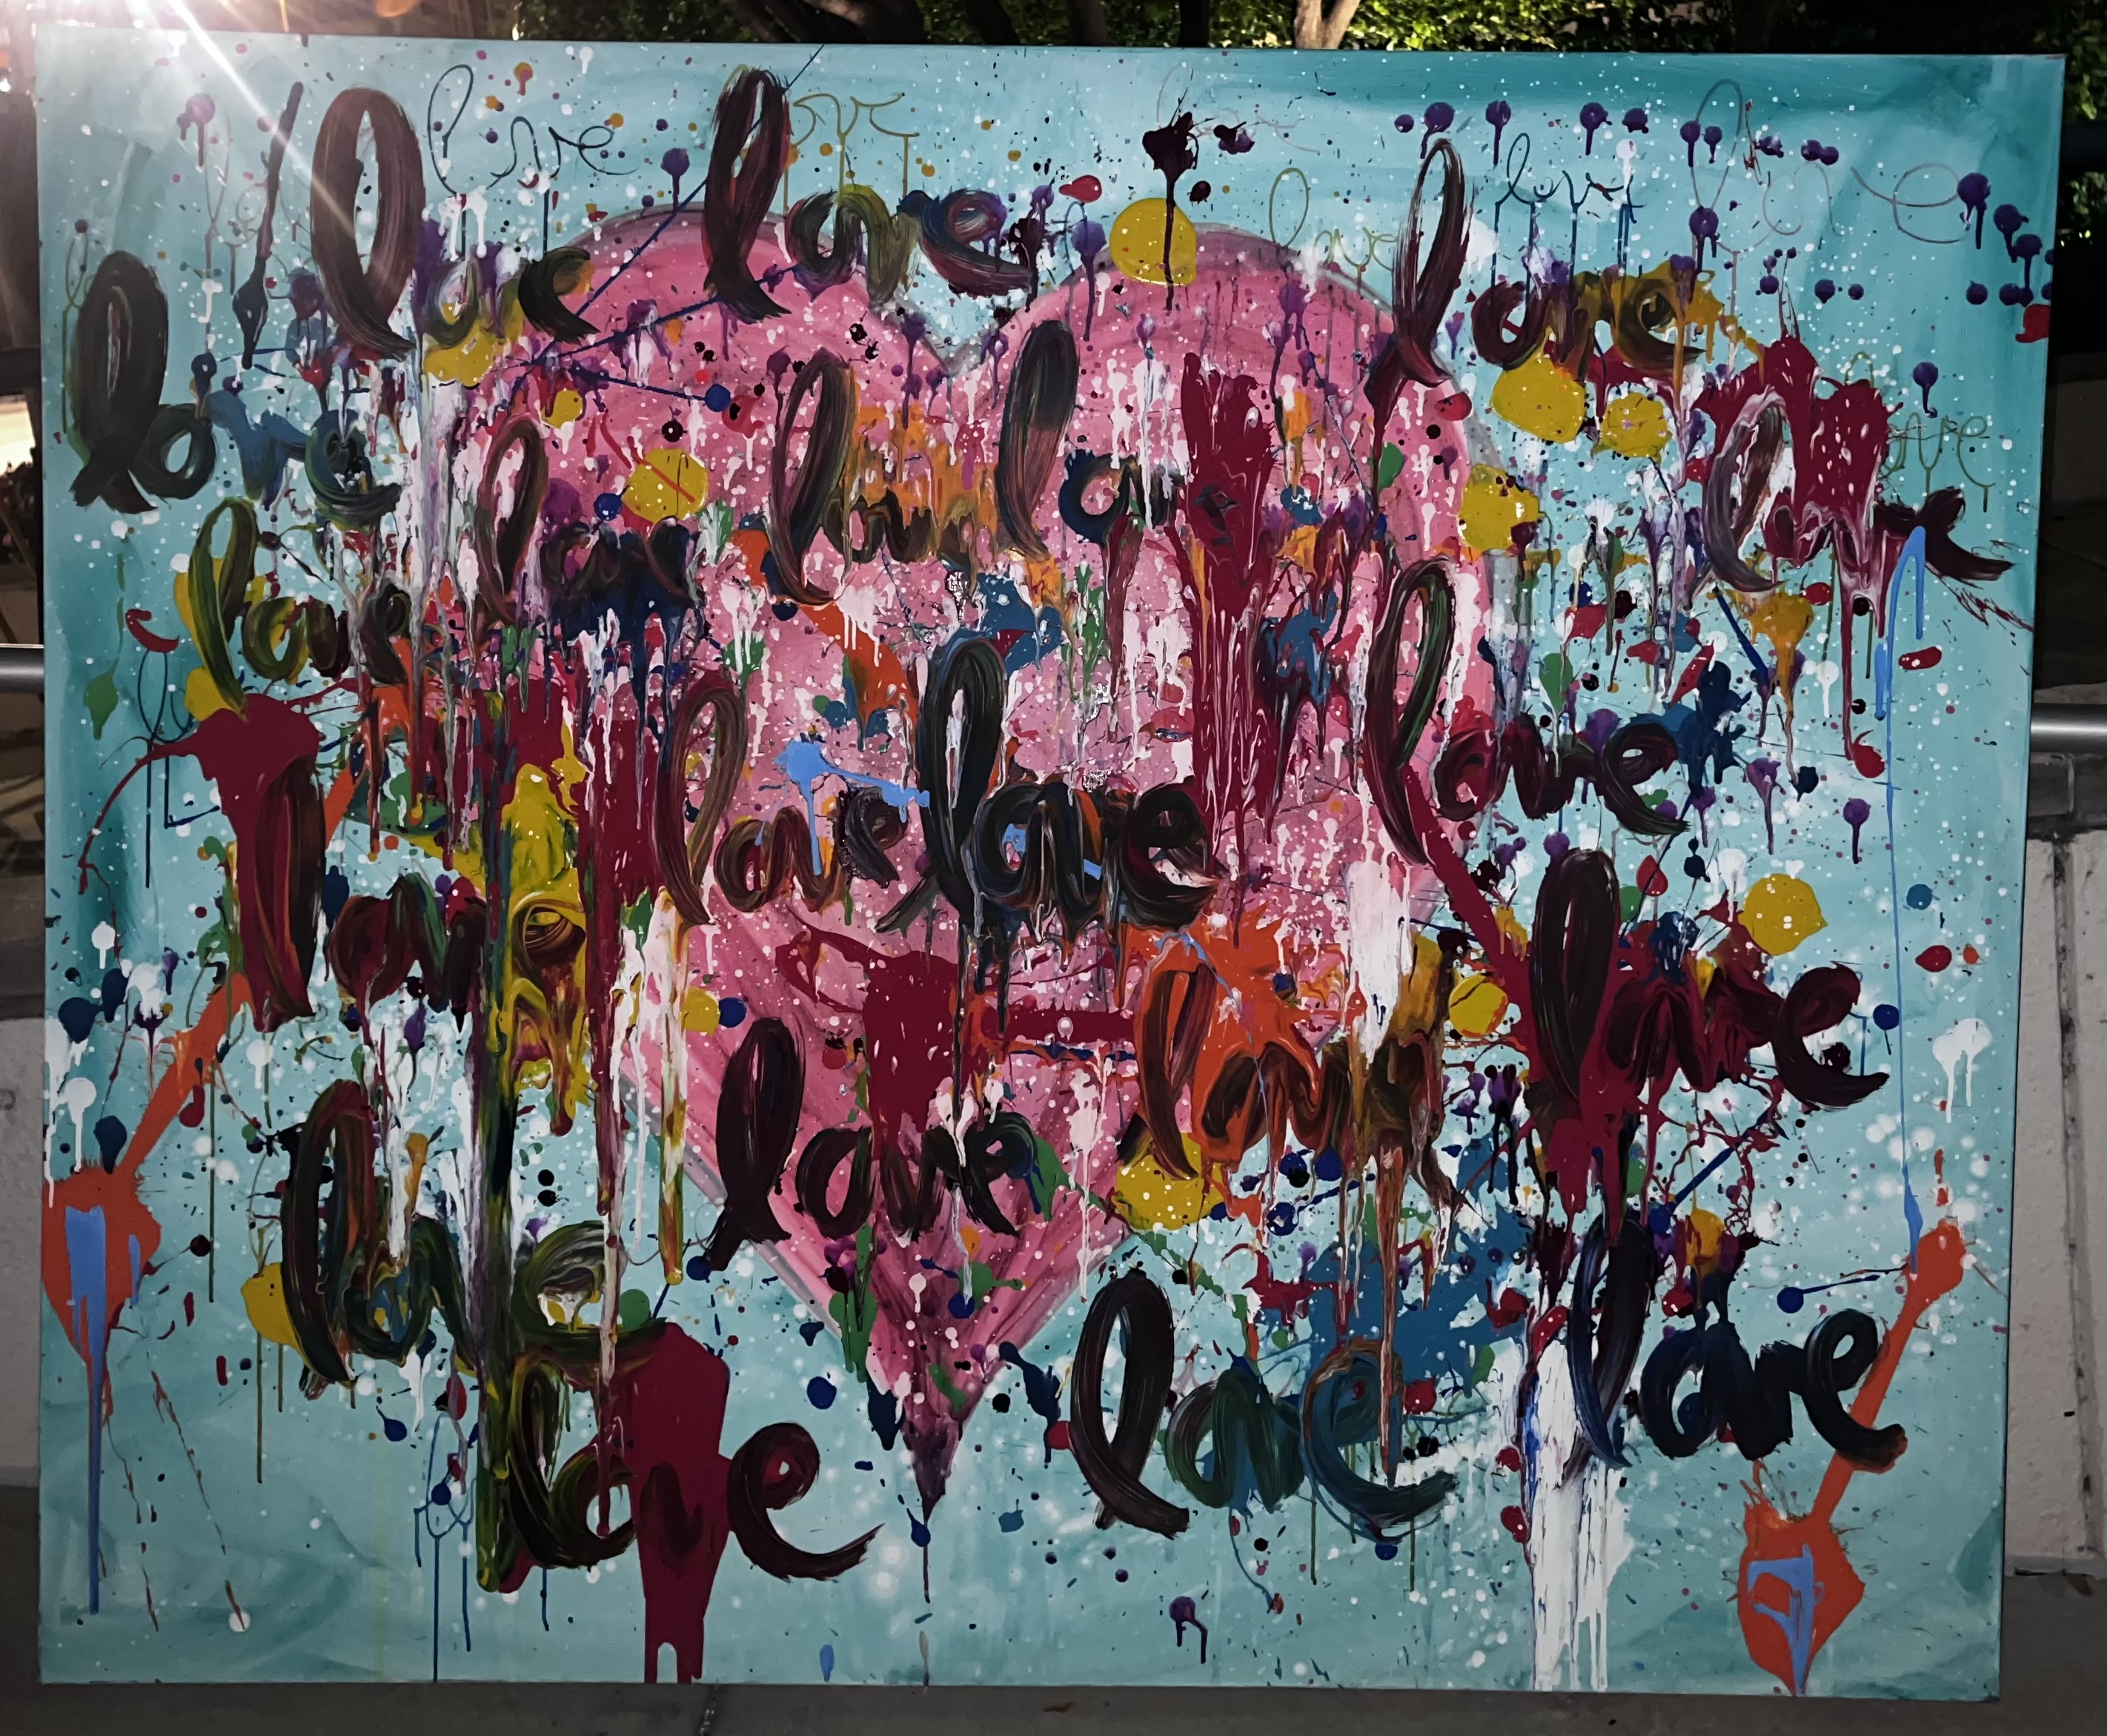 love love
love love
love
love love
love love love love
love
love
love love
love
love love
love
love
love
love love
love